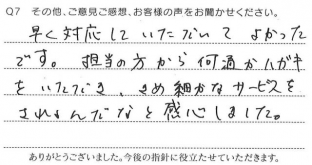 Q7 その他、ご意見ご感想、お客様の声をお聞かせください。
早く対応していただいて よかった
です。 担当の方から何通かハガキ
をいただき、きめ細かなサービスを
されるんだなと感心しました。
ありがとうございました。今後の指針に役立たせていただきます。